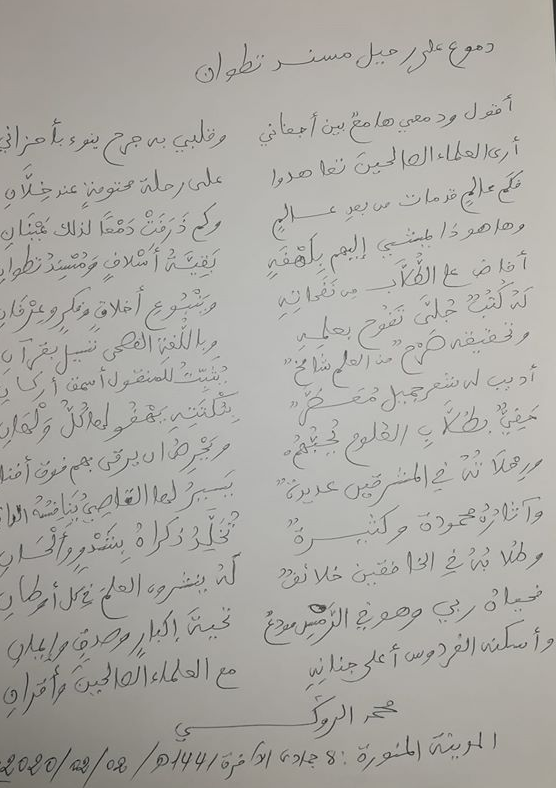 دموع على رحيل مسند تطوان
أقول ودمعي هامعٌ بين أجفاني وقلبي به جرح ينوء بأحزاني
أرى العلماء الصالحينَ تعاهدوا على رحلة محتومةٍ عند خِلَّانِ
فكم عالمٍ قد مات من بعد عالمٍ وكم ذَرَفَتْ دَمْعًا لذلك عَيْنَانِ
وها هو ذا يمشي إليهم بِلَهْفَةٍ بَقِيَّةُ أَسْلَافٍ وَمُسْنِدُ تطوانِ
أفاض على الطُّلَّابِ من نَفَحَاتِهِ وَيَنْبُوعِ أخلاقٍ وفكرٍ وعِرْفَانِ
لَهُ كُتُبٌ جُلَّى تَفُوحُ بعلمِهِ وباللُّغة الفصحى تسيل بقرآنِ
وتحقيقه صَرْحٌ من العلم شامخٌ يُثَبِّتُ للمنقول أسمق أركانِ
أديب له شعر جميل
حَفِيٌّ بطُلَّابِ العُلومِ يُحِبُّهُمْ ويَحْرِصُ أن يرقى بهم فوق
ورحلاتُهُ في المشرقين عديدةٌ يَسِيرُ لها القاصِي
وآثارُهُ محمودة وكثيرةٌ تُخَلِّدُ ذكراهُ بِشَدْوٍ وألحانِ
وطلابُهُ في الخافقين خلائقٌ لَهُ ينشرون العلمَ في كل أوطانِ
فحياهُ ربي وهو في الرَّمْسِ مودعٌ تحيةَ إكبارٍ وصدقٍ وإيمانِ
وأسكنه الفردوس أعلى جنانِهِ مع العلماء الصالحينَ وأقرانِ
محمد الروكي
المدينة المنورة: 8 جمادى الآخرة 1441ه/ 02/02/2020